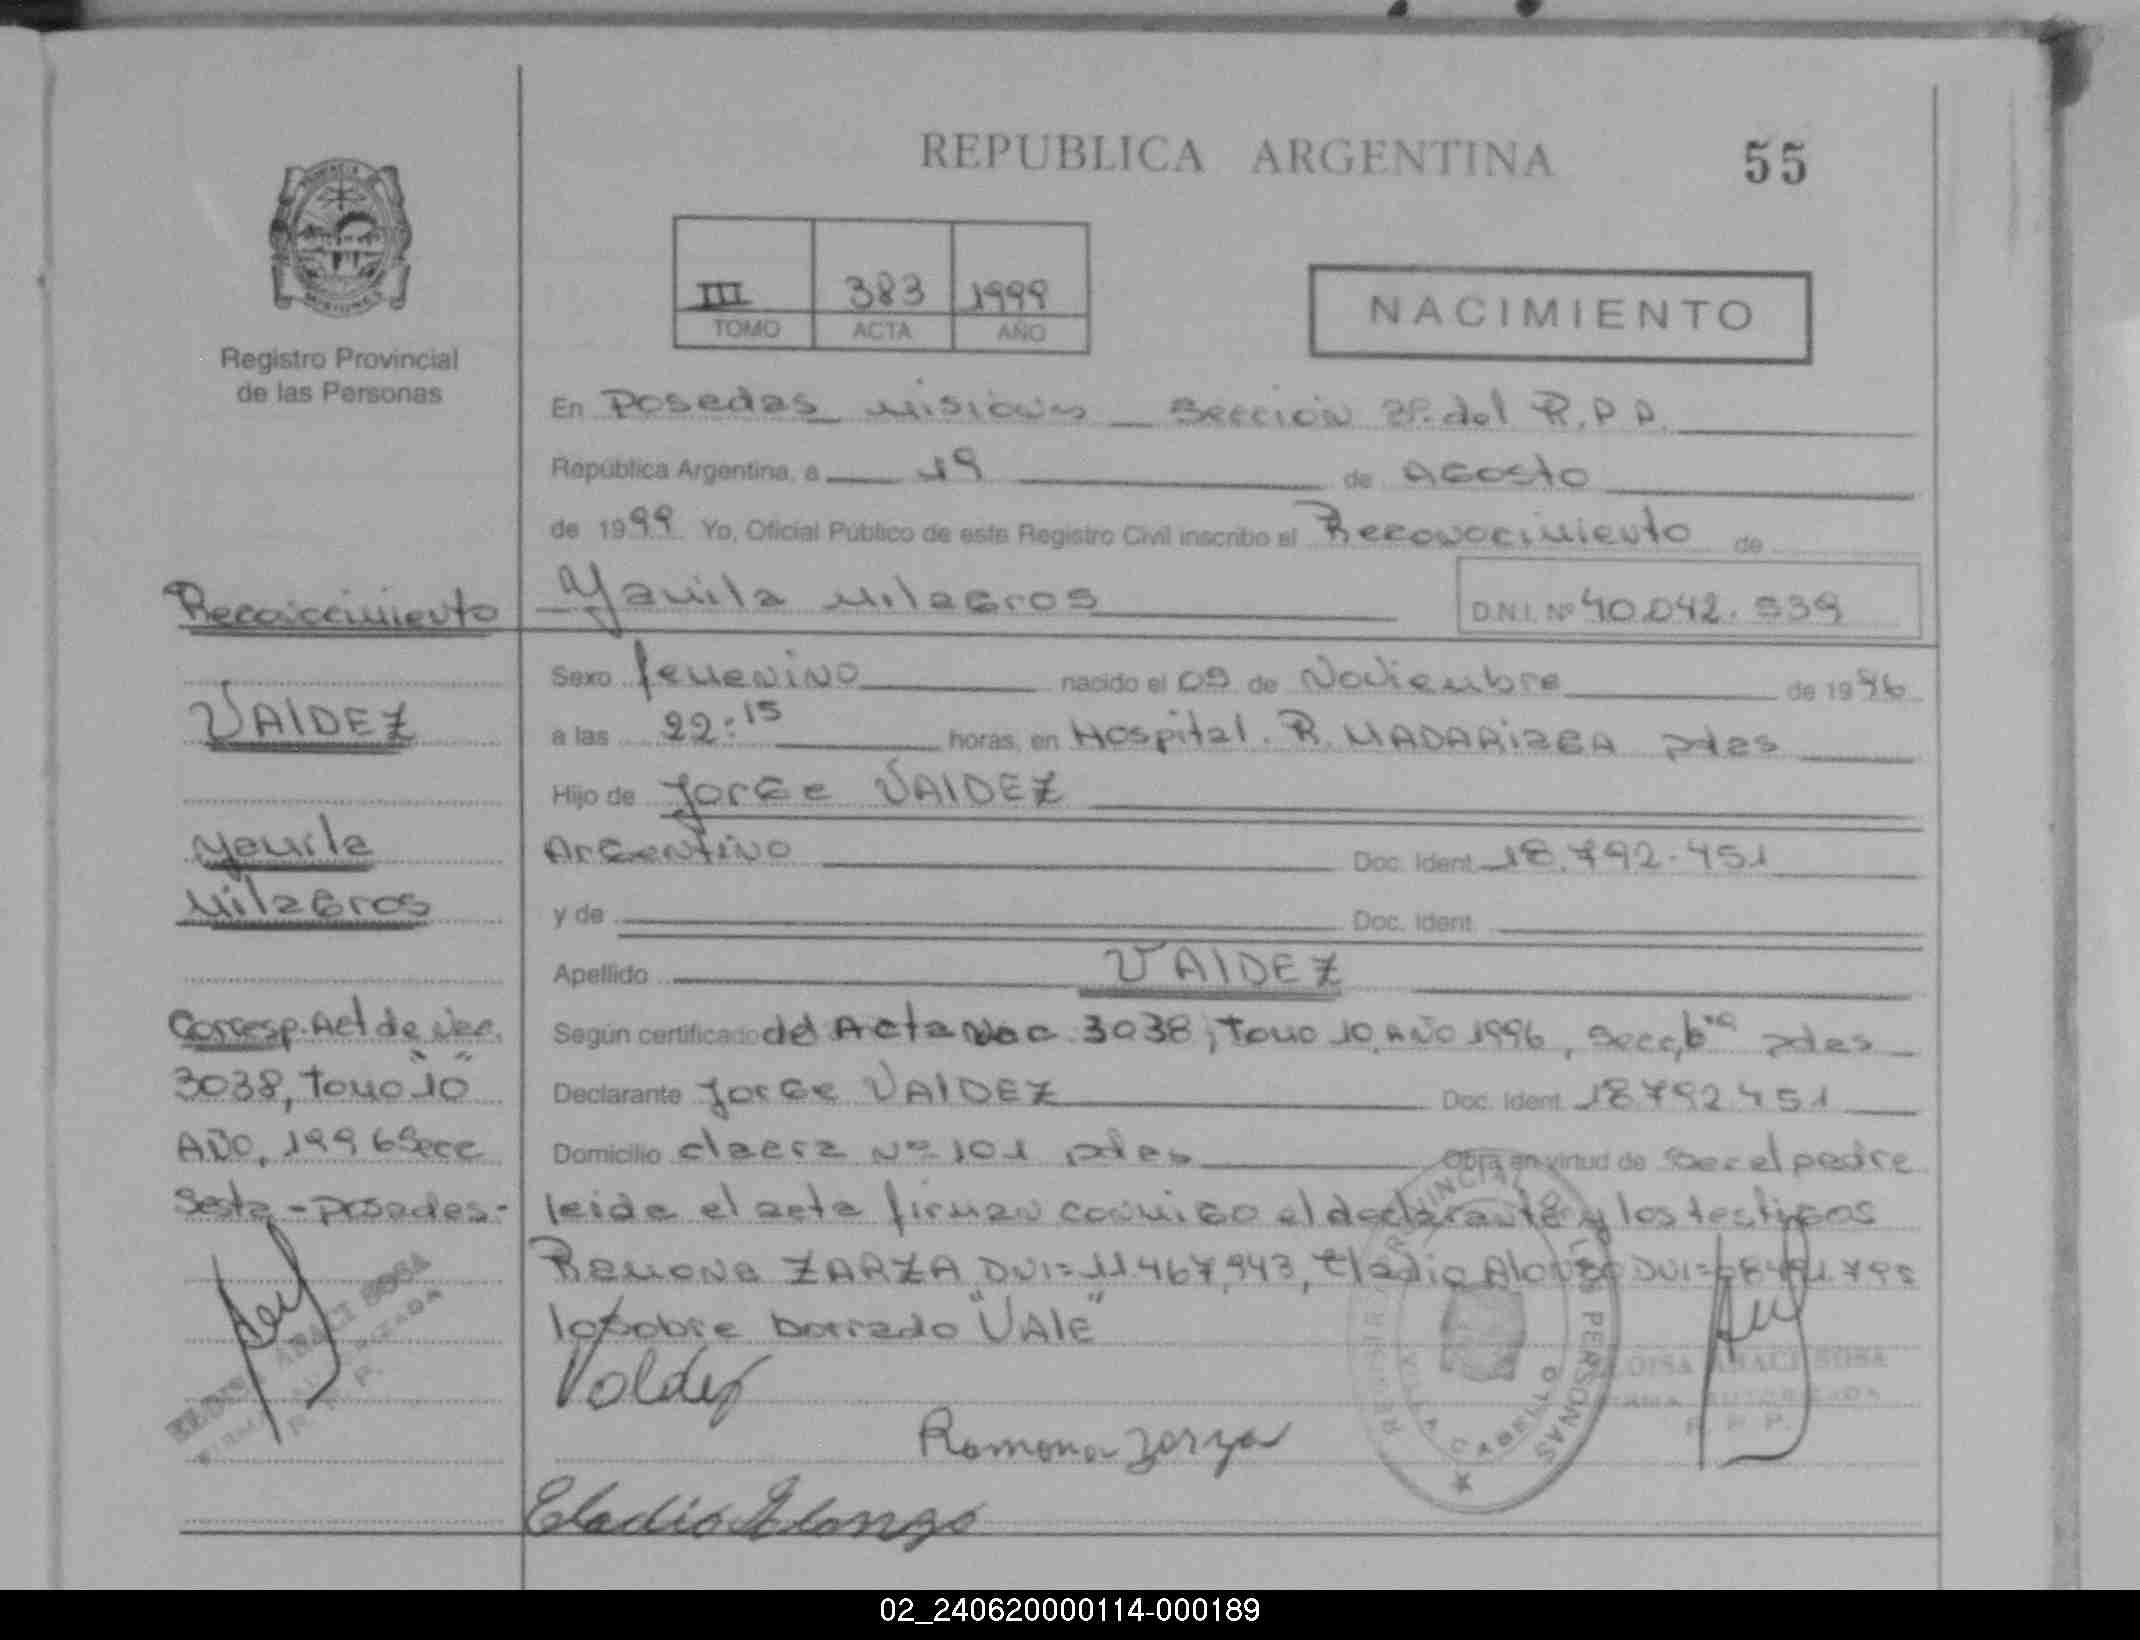 REPUBLICA ARGENTINA 55
III 383 1999
TOMO ACTA AÑO
NACIMIENTO
Registro Provincial
de las Personas
En Posadas Misiones Sección 2º. del R.P.P.
República Argentina, a 19 de Agosto
de 1999 Yo, Oficial Público de este Registro Civil inscribo el Reconocimiento de
Yamila Milagros D.N.I. Nº 40.042.539
Sexo femenino nacido el 09 de Noviembre de 1996
a las 22:15 horas, en Hospital. R. MADARIAGA pdas
Hijo de Jorge VAlDEZ
Argentino Doc. Ident. 18.792.451
y de Doc. Ident.
Apellido VAlDEZ
Según certificado del Acta Nac 3038, tomo 10, Año 1996, Secc, 6ta pdas
Declarante Jorge VAlDEZ Doc. Ident. 18792451
Domicilio Nº 101 pdas Obra en virtud de Ser el padre
leida el acta firman conmigo el declarante y los testigos
Ramona ZARZA DNI= 11.467,943, Eladio Alonso DNI=
lo sobre borrado "VAlE"
Valdez
Ramona Zarza
Eladio Alonzo
Reconocimiento
VAlDEZ
Yamila
Milagros
Corresp. Act de Nac.
3038, tomo "10"
AÑO, 1996 Secc
Sexta - posadas -
ELOISA ARACI SOSA
FIRMA AUTORIZADA
R. P. P.
REGISTRO PROVINCIAL DE LAS PERSONAS
VILLA CABELLO
ELOISA ARACI SOSA
FIRMA AUTORIZADA
R. P. P.
02_240620000114-000189